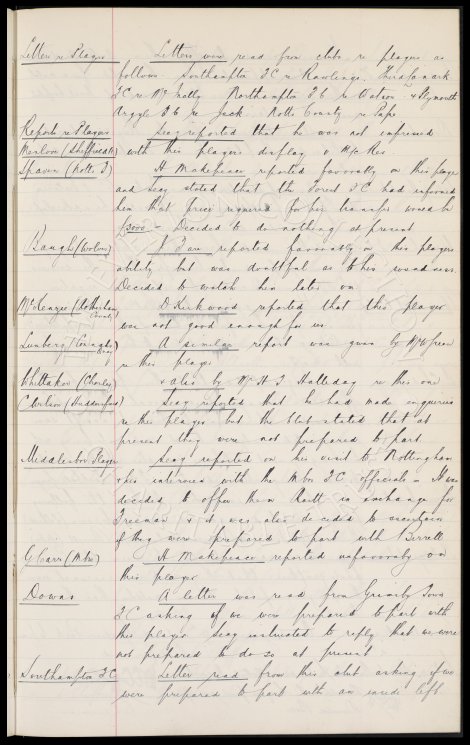 Letters re Players Letters were read from clubs re players as
follows Southampton F C re Rawlings, Third Lanark
F C re McInally Northampton F C re Watson & Plymouth
Argyle F C re Jack Notts County re Pape
Reports re Players Secy reported that he was not impressed
(Sheffield) with this players display v
Spaven (Notts F) H Makepeace reported favorably on this player
and Secy stated that the Forest F C had informed
him that price required for his transfer would be
£3000 - Decided to do nothing at present
Baugh (Wolves) reported favourably on this players
ability but was doubtful as to his soundness
Decided to watch him later on
McKenzie (Rotherham County) D Kirkwood reported that this player
was not good enough for us
A similar report was given by
re this player
Whittaker (Chorley) & also by Mr H J Halliday re this one
(Huddersfield) Secy reported that he had made enquiries
re this player but the club stated that at
present they were not prepared to part
Middlesbro Player Secy reported on his visit to Nottingham
& his interview with the Mbro F C officials - It was
decided to offer them Raitt in exchange for
Freeman & it was also decided to ascertain
if they were prepared to part with Birrell
G Carr (Mbro) H Makepeace reported unfavorably on
this player
Downs A letter was read from Grimsby Town
F C asking if we were prepared to part with
this player Secy instructed to reply that we were
not prepared to do so at present
Southampton F C Letter read from this club asking if we
were prepared to part with an inside left